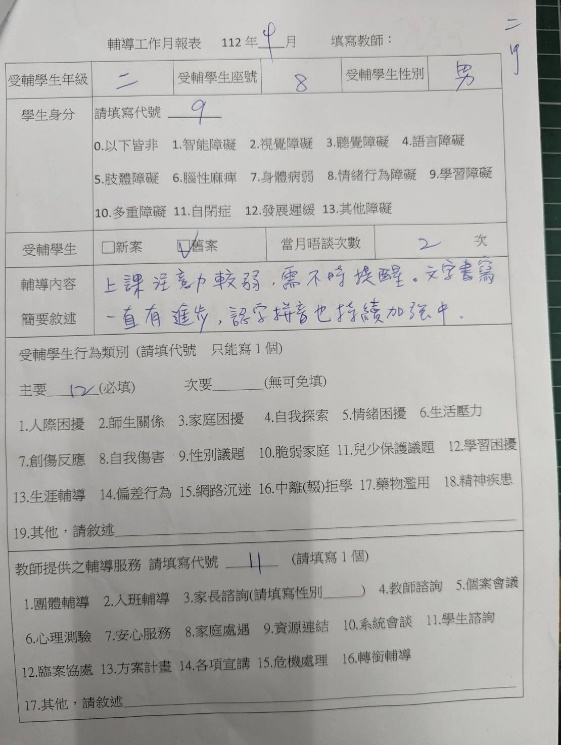 輔導工作月報表 112 年 4 月 填寫教師：
受輔學生年級 二 受輔學生座號 8 受輔學生性別 男
學生身分 請填寫代號 9
0.以下皆非 1.智能障礙 2.視覺障礙 3.聽覺障礙 4.語言障礙
5.肢體障礙 6.腦性麻痺 7.身體病弱 8.情緒行為障礙 9.學習障礙
10.多重障礙 11.自閉症 12.發展遲緩 13.其他障礙
受輔學生 □新案 ☑舊案 當月晤談次數 2 次
輔導內容 上課注意力較弱，需不時提醒。文字書寫
簡要敘述 一直有進步，認字拼音也持續加強中.
受輔學生行為類別 (請填代號 只能寫 1 個)
主要 12 (必填) 次要______(無可免填)
1.人際困擾 2.師生關係 3.家庭困擾 4.自我探索 5.情緒困擾 6.生活壓力
7.創傷反應 8.自我傷害 9.性別議題 10.脆弱家庭 11.兒少保護議題 12.學習困擾
13.生涯輔導 14.偏差行為 15.網路沉迷 16.中離(輟)拒學 17.藥物濫用 18.精神疾患
19.其他，請敘述
教師提供之輔導服務 請填寫代號 11 (請填寫 1 個)
1.團體輔導 2.入班輔導 3.家長諮詢(請填寫性別_____) 4.教師諮詢 5.個案會議
6.心理測驗 7.安心服務 8.家庭處遇 9.資源連結 10.系統會談 11.學生諮詢
12.臨案協處 13.方案計畫 14.各項宣講 15.危機處理 16.轉銜輔導
17.其他，請敘述